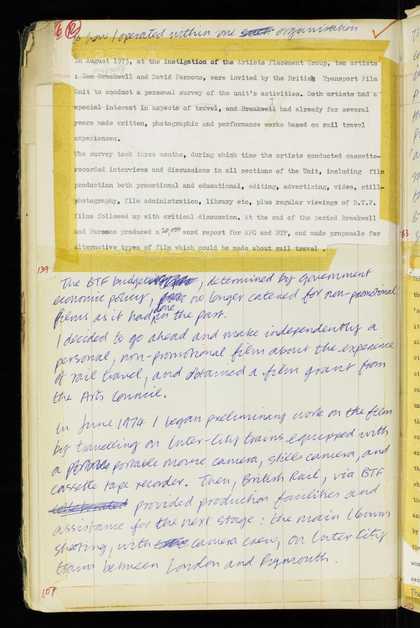 to how I operated within one organisation
In August 1973, at the instigation of the Artists Placement Group, two artists
: Ian Breakwell and David Parsons, were invited by the British Transport Film
Unit to conduct a personal survey of the unit's activities. Both artists had a
special interest in aspects of travel, and Breakwell had already for several
years made written, photographic and performance works based on rail travel
experiences.
The survey took three months, during which time the artists conducted cassette-
recorded interviews and discussions in all sections of the Unit, including film
production both promotional and educational, editing, advertising, video, still-
photography, film administration, library etc, plus regular viewings of B.T.F.
films followed up with critical discussion. At the end of the period Breakwell
and Parsons produced a 20,000 word report for APG and BTF, and made proposals for
alternative types of film which could be made about rail travel .
139
The BTF budget, determined by Government
economic policy, no longer catered for non-promotional
films as it had done in the past.
I decided to go ahead and make independently a
personal, non-promotional film about the experience
of rail travel, and obtained a film grant from
the Arts Council.
In June 1974 I began preliminary work on the film
by travelling on Inter-City trains equipped with
a portable movie camera, still camera, and
cassette tape recorder. Then, British Rail, via BTF
provided production facilities and
assistance for the next stage : the main 16mm
shooting, with camera crew, on Inter City
trains between London and Plymouth.
107